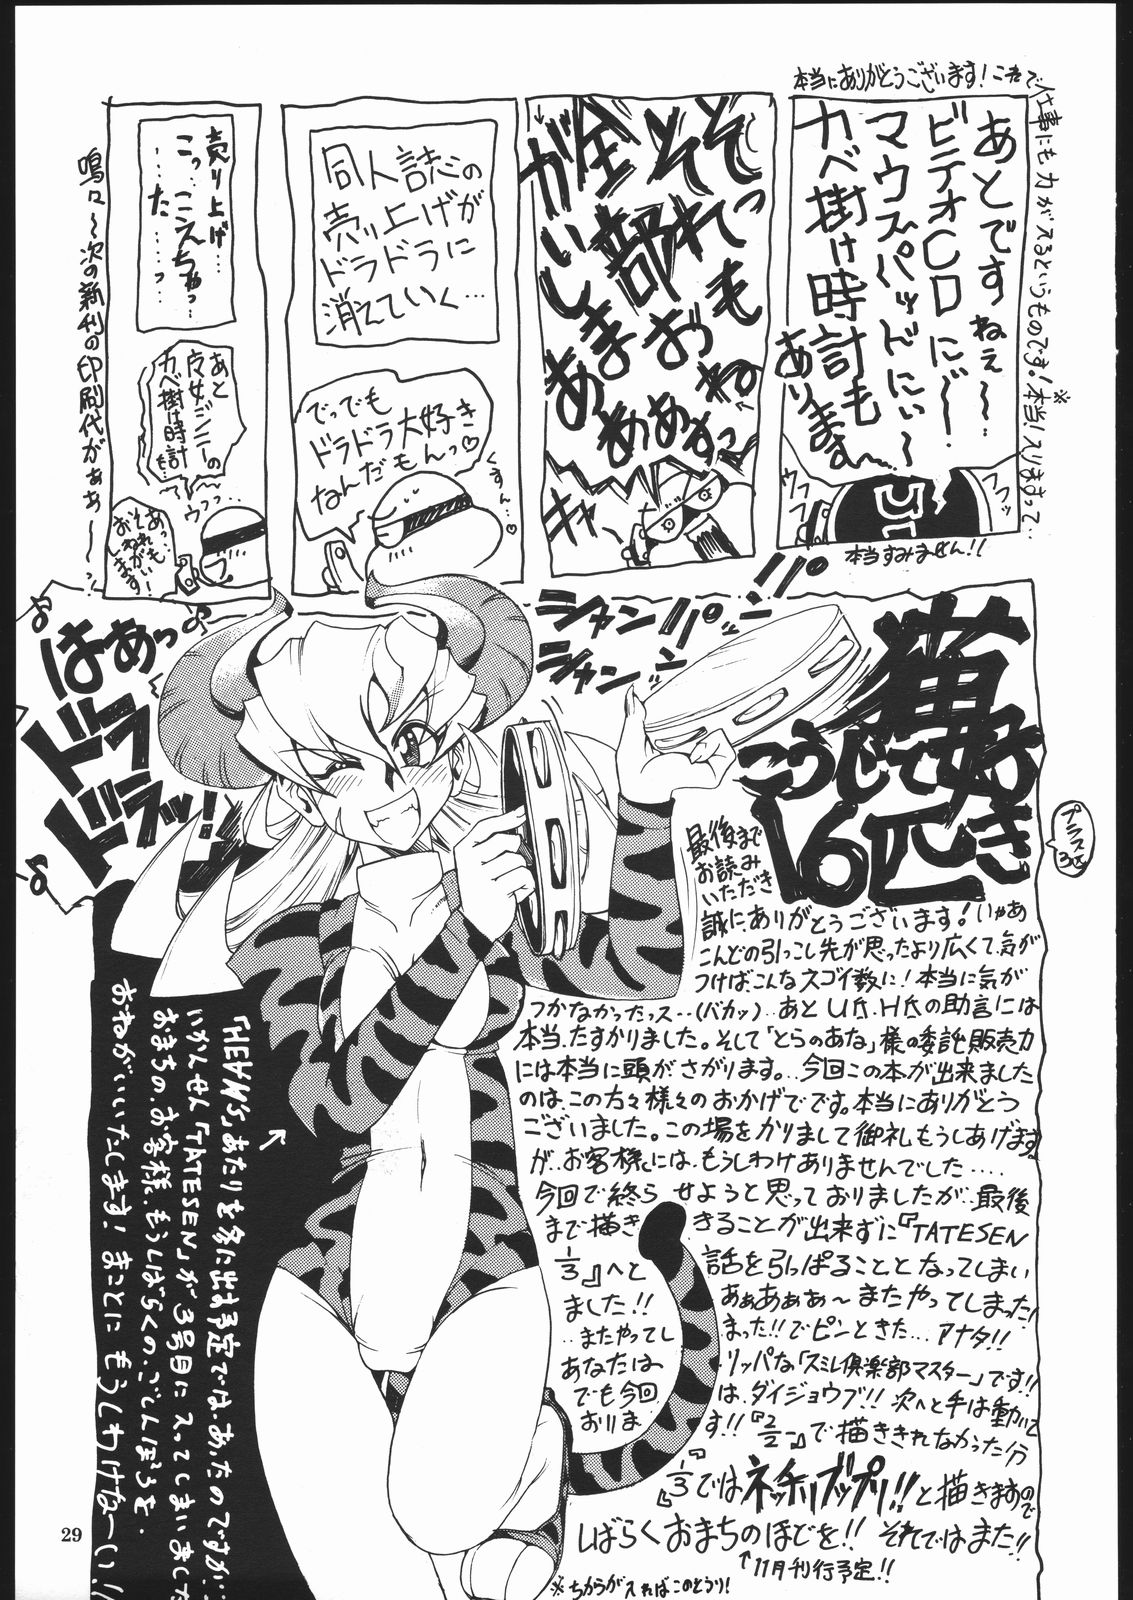 本当にありがとうございます!これで仕事にも力が入るというものです!※本当!入りまくって..
あとですねぇ〜
ビデオCDにぃ〜
マウスパッドにぃ〜
カベ掛け時計も
ありまぁ〜
ウフフ
フッフッ
本当すみません!!
そそれっも
とれもおねあすっ
全部おああ
がいしまああ
キャー
同人誌の
売り上げが
ドラドラに
消えていく…
でっでも
ドラドラ大好き
なんだもんっ♡
くすん…♡
売り上げ…
こっ…こえちゃっ…
……た………っ
あと
魔女ジニーの
カベ掛け時計も
ウフッ…
あっ
それも
おねがい
します!
鳴々〜次の新刊の印刷代がぁぁ〜〜っ
はぁっ
ドラ
ドラッ!
シャンシャン
パンパン
猫好き
こうじて
16匹
プラス3匹
最後まで
お読み
いただき
誠にありがとうございます!いやあ
こんどの引っこし先が思ったより広くて、気が
つけばこんなスゴイ数に!本当に気が
つかなかったっス…(バカッ)..あとU氏、H氏の助言には
本当、たすかりました。そして「とらのあな」様の委託販売力
には本当に頭がさがります。..今回この本が出来ました
のは、この方々様々のおかげでです。本当にありがとう
ございました。この場をかりまして御礼もうしあげます。
が、お客様には、もうしわけありませんでした....
今回で終らせようと思っておりましたが、最後
まで描ききることが出来ずに『TATESEN
1/3』へと話を引っぱることとなってしまい
ました!!ああぁあぁぁ〜またやってしまった!
..またやってしまった!!でピンときた…アナタ!!
あなたはリッパな「スミレ倶楽部マスター」です!!
でも今回は、ダイジョウブ!!次へと手は動いて
おります!!『2/2』で描ききれなかった分
『1/3』ではネッチリブップリ!!と描きますので
しばらくおまちのほどを!!それではまた!!
↑11月刊行予定!!
※ちからが入ればこのとうり!
「HEAVN'S」あたりを冬に出す予定では、あったのですが…
いかんせん「TATESEN」が3号目に入ってしまいました
おまちの、お客様、もうしばらくの、ごしんぼうを、
おねがいいたします!まことにもうしわけなーい!!
29